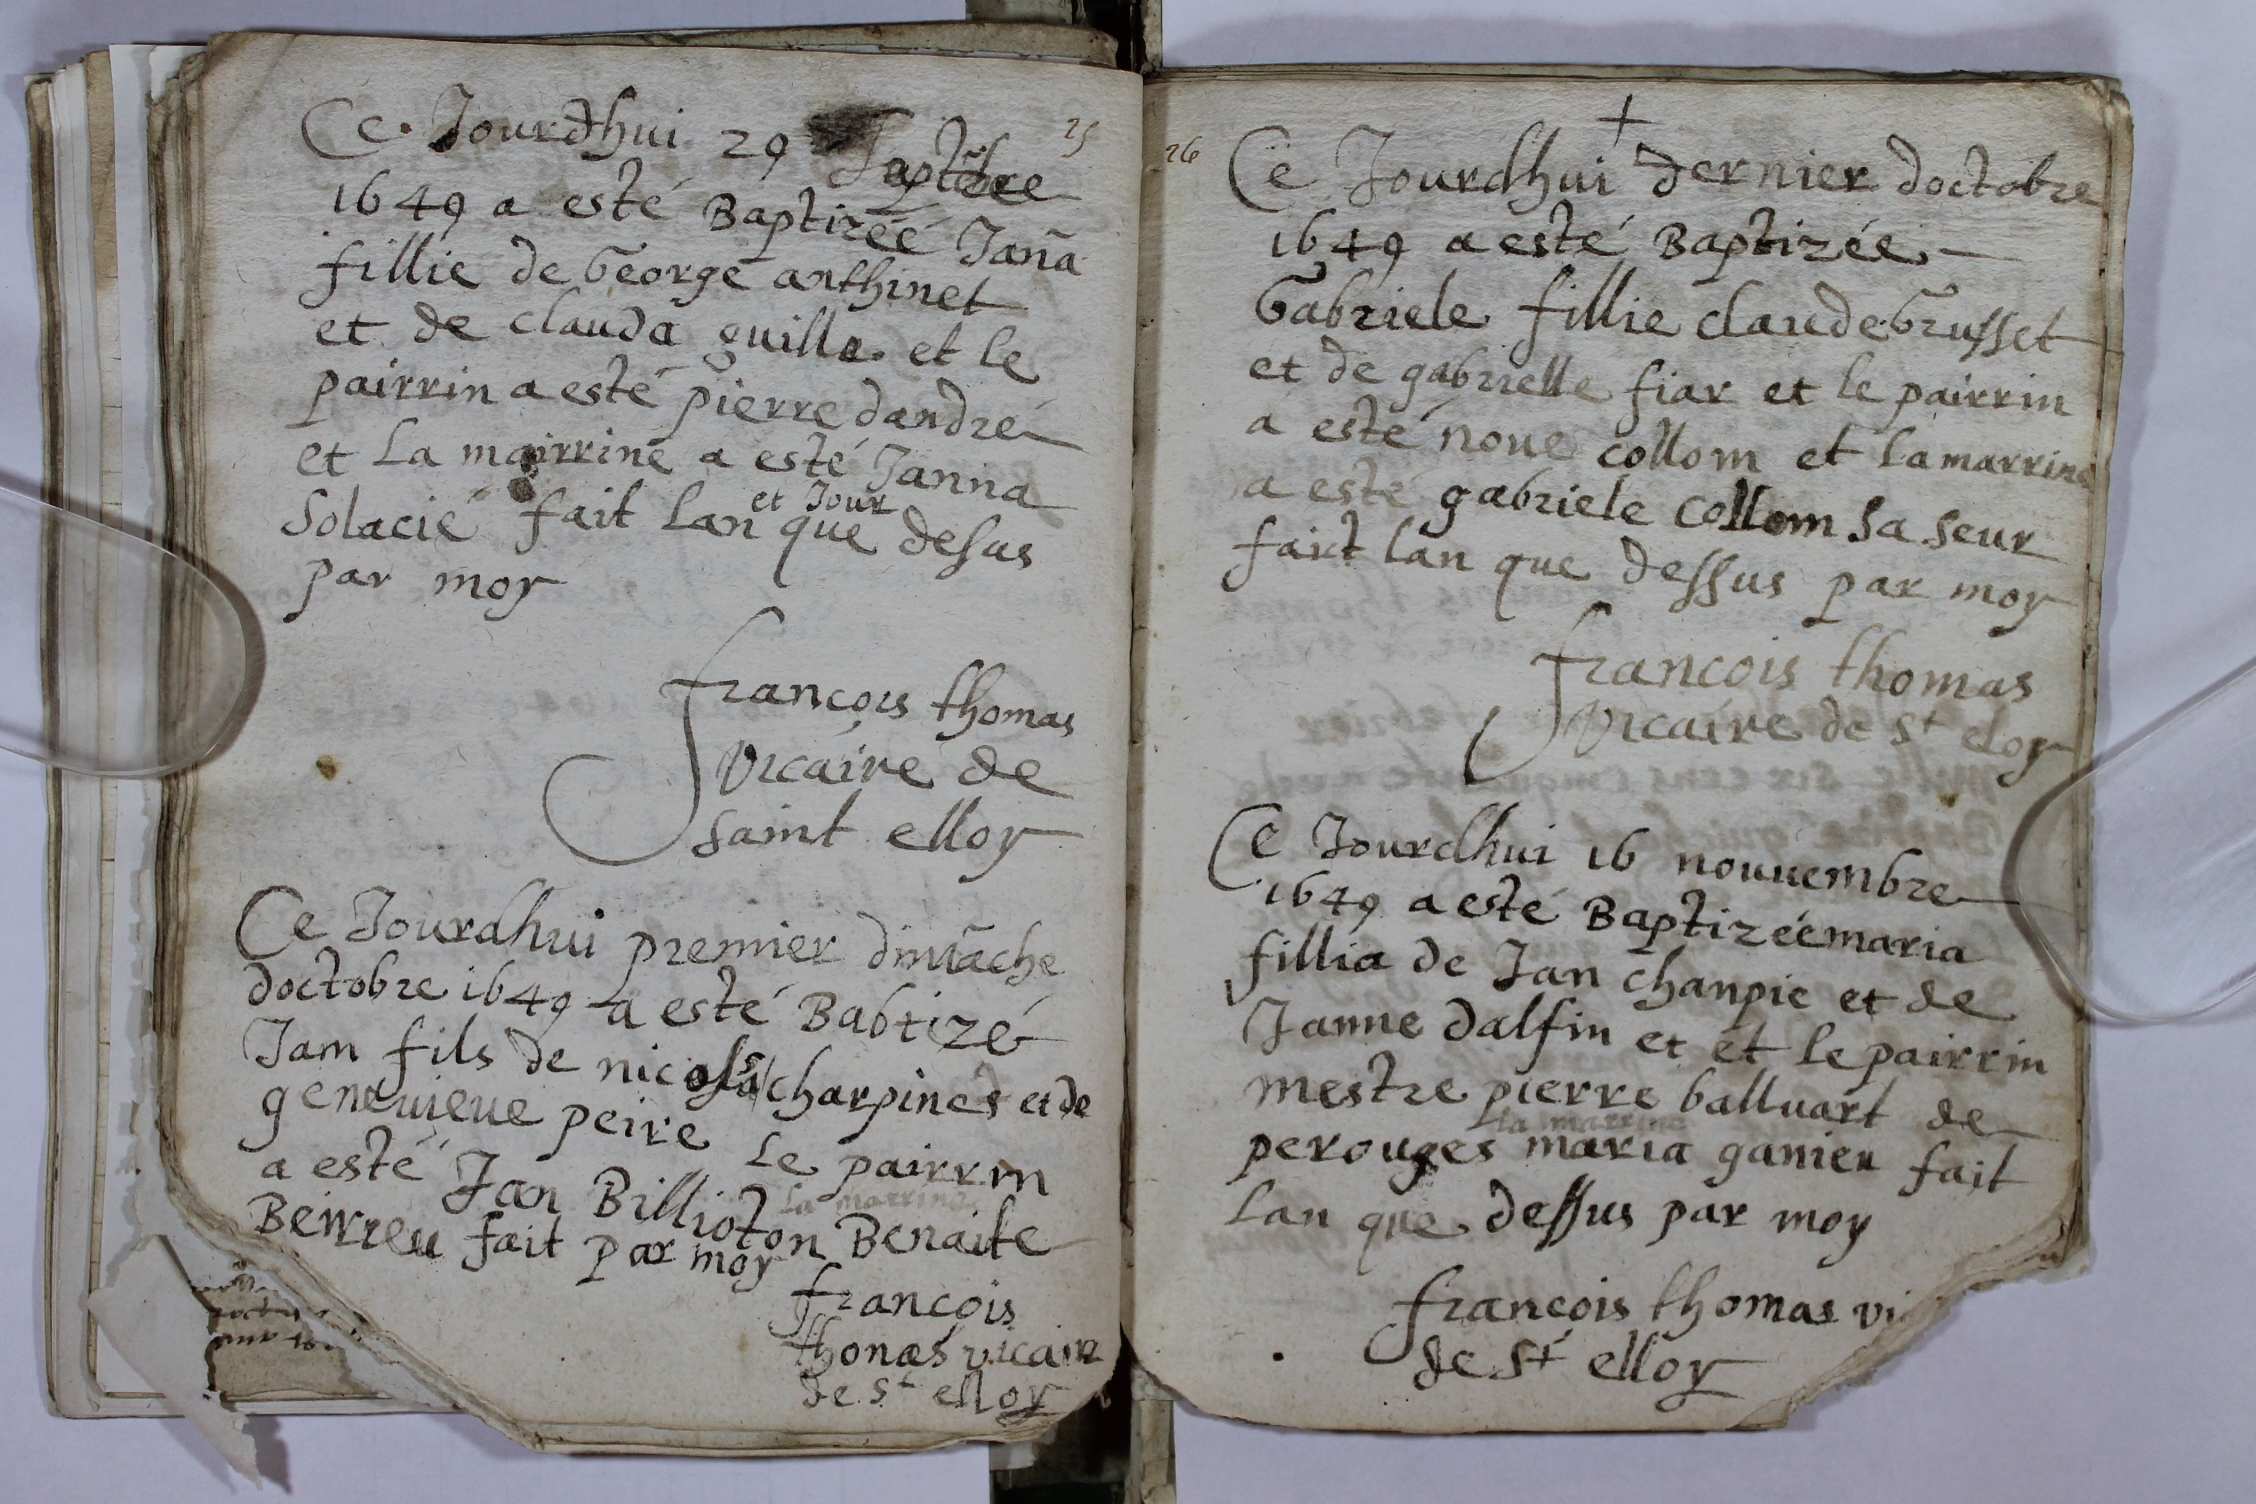 25
Ce Jourdhui 29 Septẽbre
1649 a esté Baptizéé Jaña
fillie de George anthinet
et de clauda guilla et le
pairrin a esté pierre dandré
et La mairrine a esté Janna
Solacié fait Lan et Jour que desus
par moy
francois thomas
vicaire de
saint elloy
Ce Jourdhui premier dimãche
doctobre 1649 a esté Babtizé
Jam fils de nicolas charpines et de
genevieve peire Le pairrin
a esté Jan Billioton La marrine Benaite
Beirreu fait par moy
francois
thomas vicaire
de St elloy
26
Ce Jourdhui dernier doctobre
1649 a esté Baptizée
Gabriele fillie claude Grusset
et de gabrielle fiar et le pairrin
a esté noue collom et la marrine
a esté gabriele collom sa seur
faict lan que dessus par moy
francois thomas
vicaire de St eloy
Ce Jourdhui 16 nouuembre
1649 a esté Baptizéé maria
fillia de Jan chanpie et de
Janne dalfin et et le pairrin
mestre pierre balluart de
perouges La marrine maria ganieu fait
Lan que dessus par moy
francois thomas vi
de St elloy